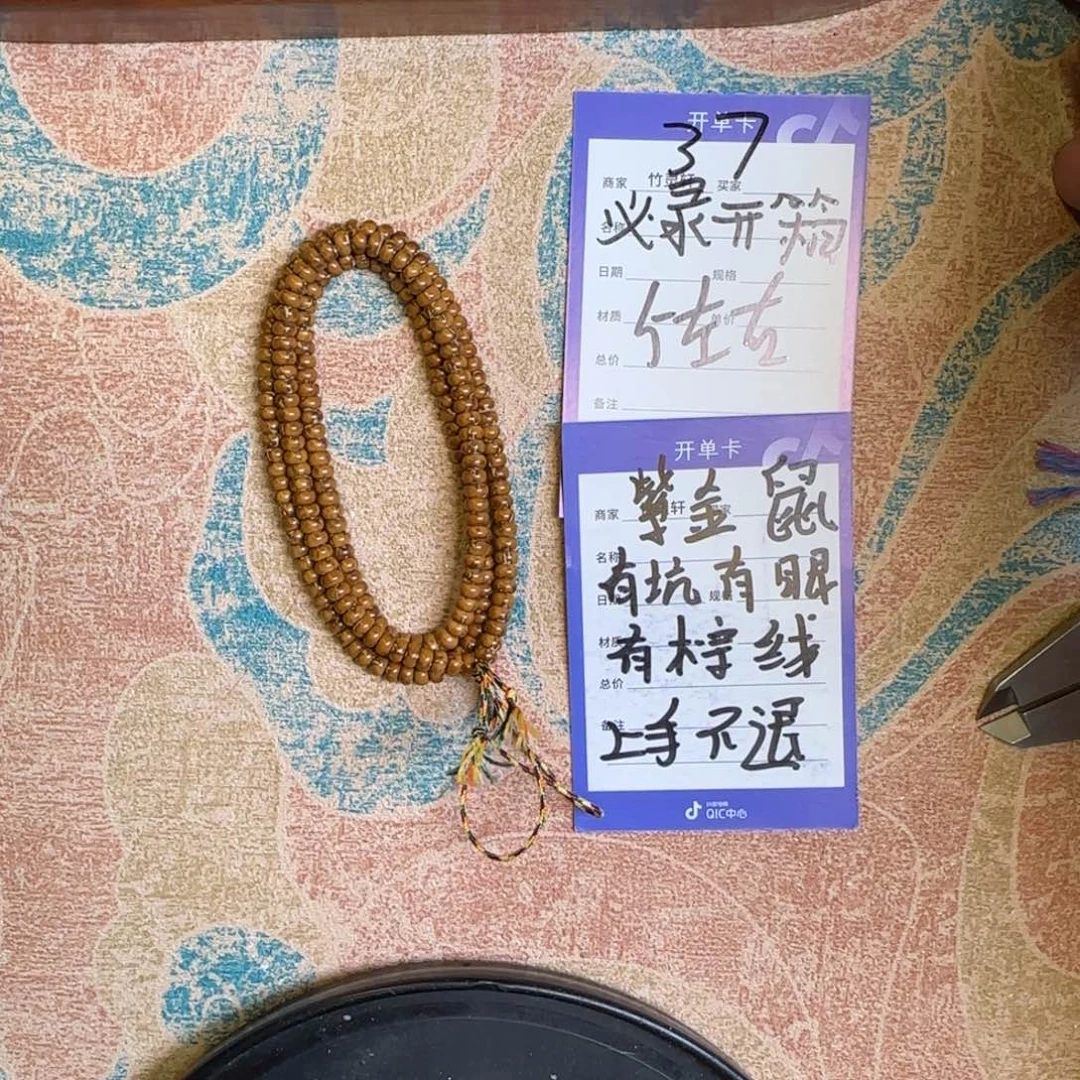 开单卡
37
商家 竹 轩 买家
必录开箱
名称
日期 规格
佐左
材质 单价
总价
备注
开单卡
紫金鼠
商家 轩 买家
名称
有坑有眼
日期 规格
材质
有棕线
总价
备注
上手不退
抖音电商
QIC中心